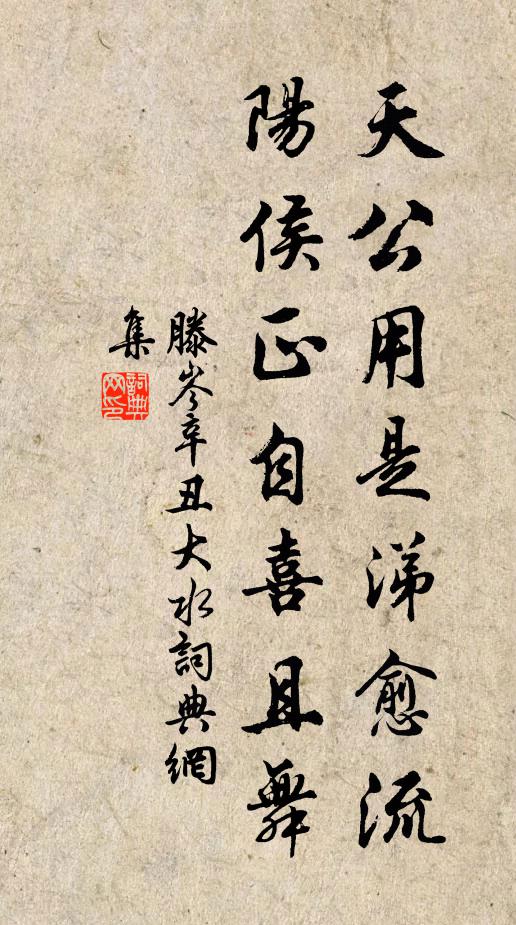 天公用是涕愈流
陽侯正自喜且舞
滕岑辛丑大水詞典網
集
詞典網印